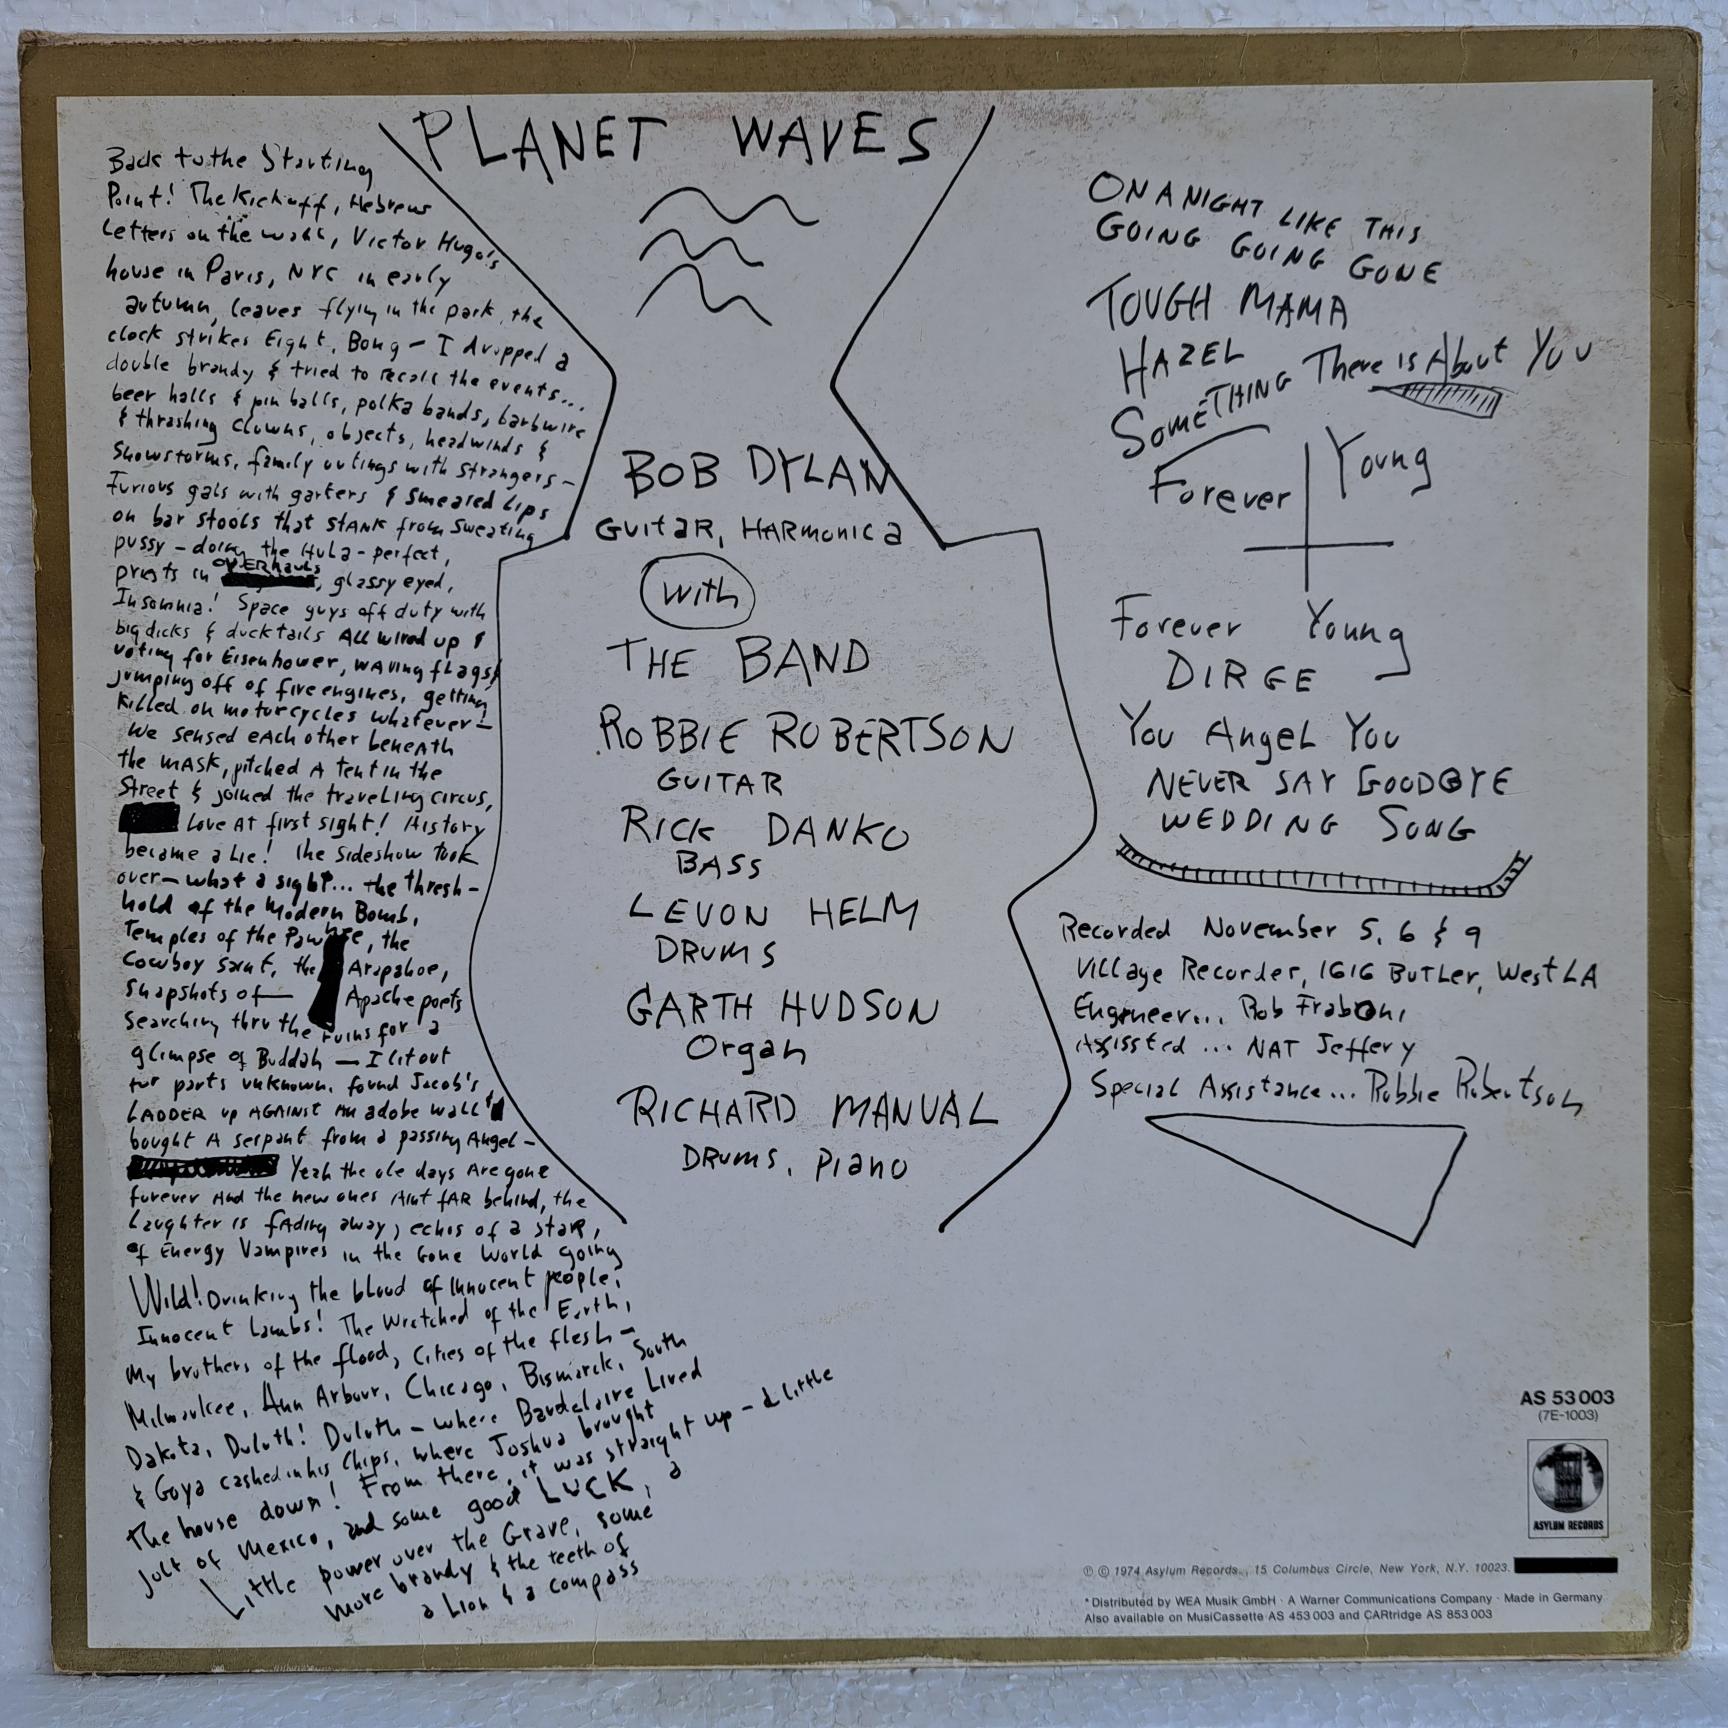 PLANET WAVES
Back to the Starting
Point! The Kickoff, Hebrew
Letters on the wall, Victor Hugo's
house in Paris, NYC in early
autumn, leaves flying in the park, the
clock strikes Eight, Bong — I dropped a
double brandy & tried to recall the events...
beer halls & pin balls, polka bands, barbwire
& thrashing clowns, objects, headwinds &
Snowstorms, family outings with strangers —
Furious gals with garters & smeared Lips
on bar stools that stANK from sweating
pussy — doing the Hula - perfect,
priests in OVERhauls, glassy eyed,
Insomnia! Space guys off duty with
big dicks & ducktails All wired up &
voting for Eisenhower, waving flags &
jumping off of fire engines, getting
killed on motorcycles whatever —
We sensed each other beneath
the mASK, pitched A tent in the
Street & joined the traveling circus,
Love AT first sight! History
became a Lie! The sideshow took
over — what a sight... the thresh-
hold of the Modern Bomb,
Temples of the Pawnee, the
Cowboy saint, the Arapahoe,
snapshots of — Apache poets
searching thru the ruins for a
glimpse of Buddah — I lit out
for parts unknown, found Jacob's
LADDER up AGAINST AN adobe wall &
bought A serpant from a passing Angel —
Yeah the ole days Are gone
forever And the new ones Aint fAR behind, the
Laughter is fAding away, echos of a star,
of Energy Vampires in the Gone World going
Wild! Drinking the blood of Innocent people,
Innocent Lambs! The Wretched of the Earth,
My brothers of the flood, Cities of the flesh —
Milwaukee, Ann Arbour, Chicago, Bismarck, South
Dakota, Duluth! Duluth — where Baudelaire Lived
& Goya cashed in his Chips, where Joshua brought
The house down! From there, it was straight up — a little
jolt of Mexico, and some good LUCK, a
Little power over the Grave, some
more brandy & the teeth of
a Lion & a compass
BOB DYLAN
GUITAR, HARMONICA
with
THE BAND
ROBBIE ROBERTSON
GUITAR
RICK DANKO
BASS
LEVON HELM
DRUMS
GARTH HUDSON
Organ
RICHARD MANUAL
DRUMS, PIANO
ON A NIGHT LIKE THIS
GOING GOING GONE
TOUGH MAMA
HAZEL
SOMETHING There is About You
Forever Young
Forever Young
DIRGE
You Angel You
NEVER SAY GOODBYE
WEDDING SONG
Recorded November 5, 6 & 9
Village Recorder, 1616 BUTLER, West LA
Engineer... Rob Fraboni
Assissted ... NAT Jeffery
Special Assistance... Robbie Robertson
AS 53 003
(7E-1003)
ASYLUM RECORDS
℗ © 1974 Asylum Records., 15 Columbus Circle, New York, N.Y. 10023.
* Distributed by WEA Musik GmbH · A Warner Communications Company · Made in Germany
Also available on MusiCassette AS 453 003 and CARtridge AS 853 003